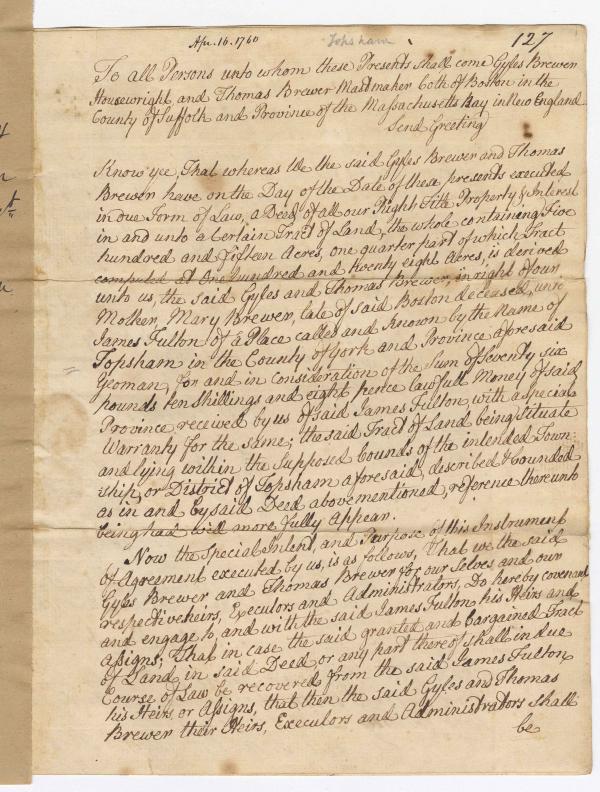 Apr. 16. 1760
Topsham
127
To all Persons unto whom these Presents shall come Gyles Brewer
Housewright, and Thomas Brewer Mastmaker both of Boston in the
County of Suffolk and Province of the Massachusetts Bay in New England
Send Greeting
Know ye, That whereas We the said Gyles Brewer and Thomas
Brewer have on the Day of the Date of these presents executed
in due Form of Law, a Deed of all our Right Title Property & Interest
in and unto a Certain Tract of Land, the whole containing Five
hundred and fifteen Acres, one quarter part of which Tract
computed at One hundred and twenty eight Acres, is derived
unto us, the said Gyles and Thomas Brewer, in right of our
Mother, Mary Brewer, late of said Boston deceased, unto
James Fulton of a Place called and known by the Name of
Topsham in the County of York and Province aforesaid
Yeoman, for and in consideration of the Sum of Seventy six
pounds ten shillings and eight pence lawfull Money of said
Province received by us of said James Fulton with a special
Warranty for the same; the said Tract of Land being situate
and lying within the Supposed bounds of the intended Town=
ship, or District of Topsham aforesaid, described & bounded
as in and by said Deed abovementioned, reference thereunto
being had will more fully Appear.
Now the Special Intent, and Purpose of this Instrument
of Agreement executed by us, is as follows, That we the said
Gyles Brewer and Thomas Brewer for our Selves and our
respective heirs, Executors and Administrators, Do hereby covenant
and engage to, and with the said James Fulton his Heirs and
Assigns; That in case the said granted and bargained Tract
of Land in said Deed or any part thereof shall in due
Course of Law be recovered from the said James Fulton
his Heirs, or Assigns, that then the said Gyles and Thomas
Brewer their Heirs, Executors and Administrators shall
be